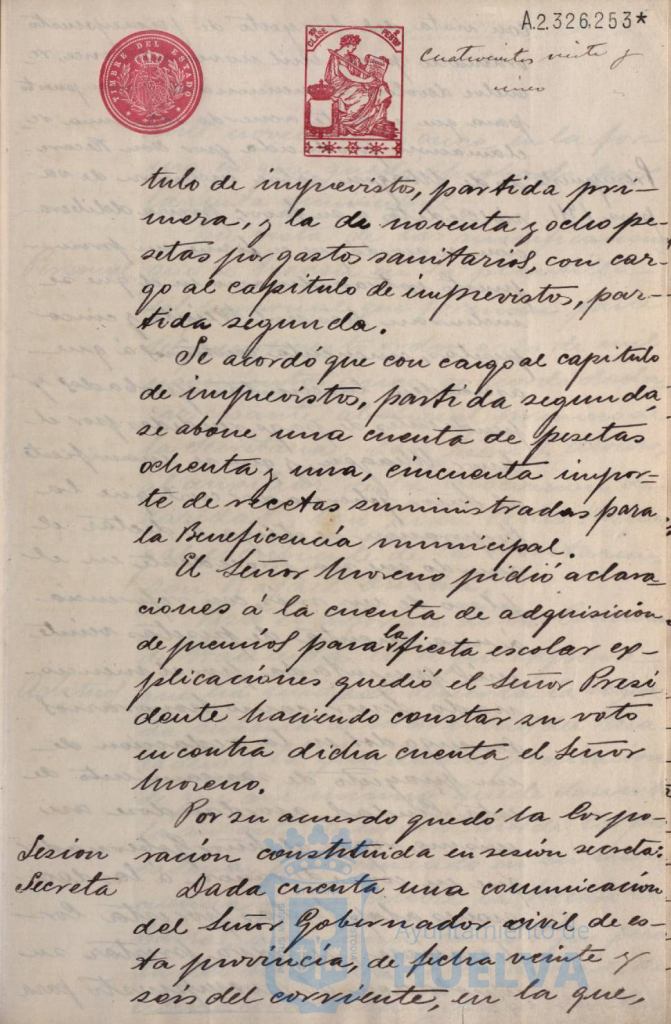 A.2.326.253*
TIMBRE DEL ESTADO
CLASE
Cuatrocientos veinte y
cinco
tulo de imprevistos, partida pri-
mera, y la de noventa y ocho pe-
setas por gastos sanitarios, con car-
go al capitulo de imprevistos, par-
tida segunda.
Se acordó que con cargo al capitulo
de imprevistos, partida segunda,
se abone una cuenta de pesetas
ochenta y una, cincuenta impor-
te de recetas suministradas para
la Beneficencia municipal.
El Señor Moreno pidió aclara-
ciones á la cuenta de adquisición
de premios para la fiesta escolar ex-
plicaciones que dió el Señor Presi-
dente haciendo constar su voto
en contra dicha cuenta el Señor
Moreno.
Por su acuerdo quedó la Corpo-
Sesion
ración constituida en sesión secreta:
Secreta
Dada cuenta una comunicación
del Señor Gobernador civil de es-
ta provincia, de fecha veinte y
seis del corriente, en la que,
Ayuntamiento de
HUELVA